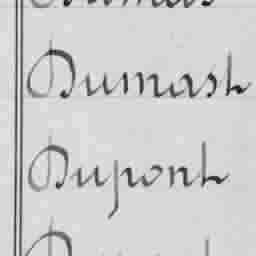 Dumast
Dupont